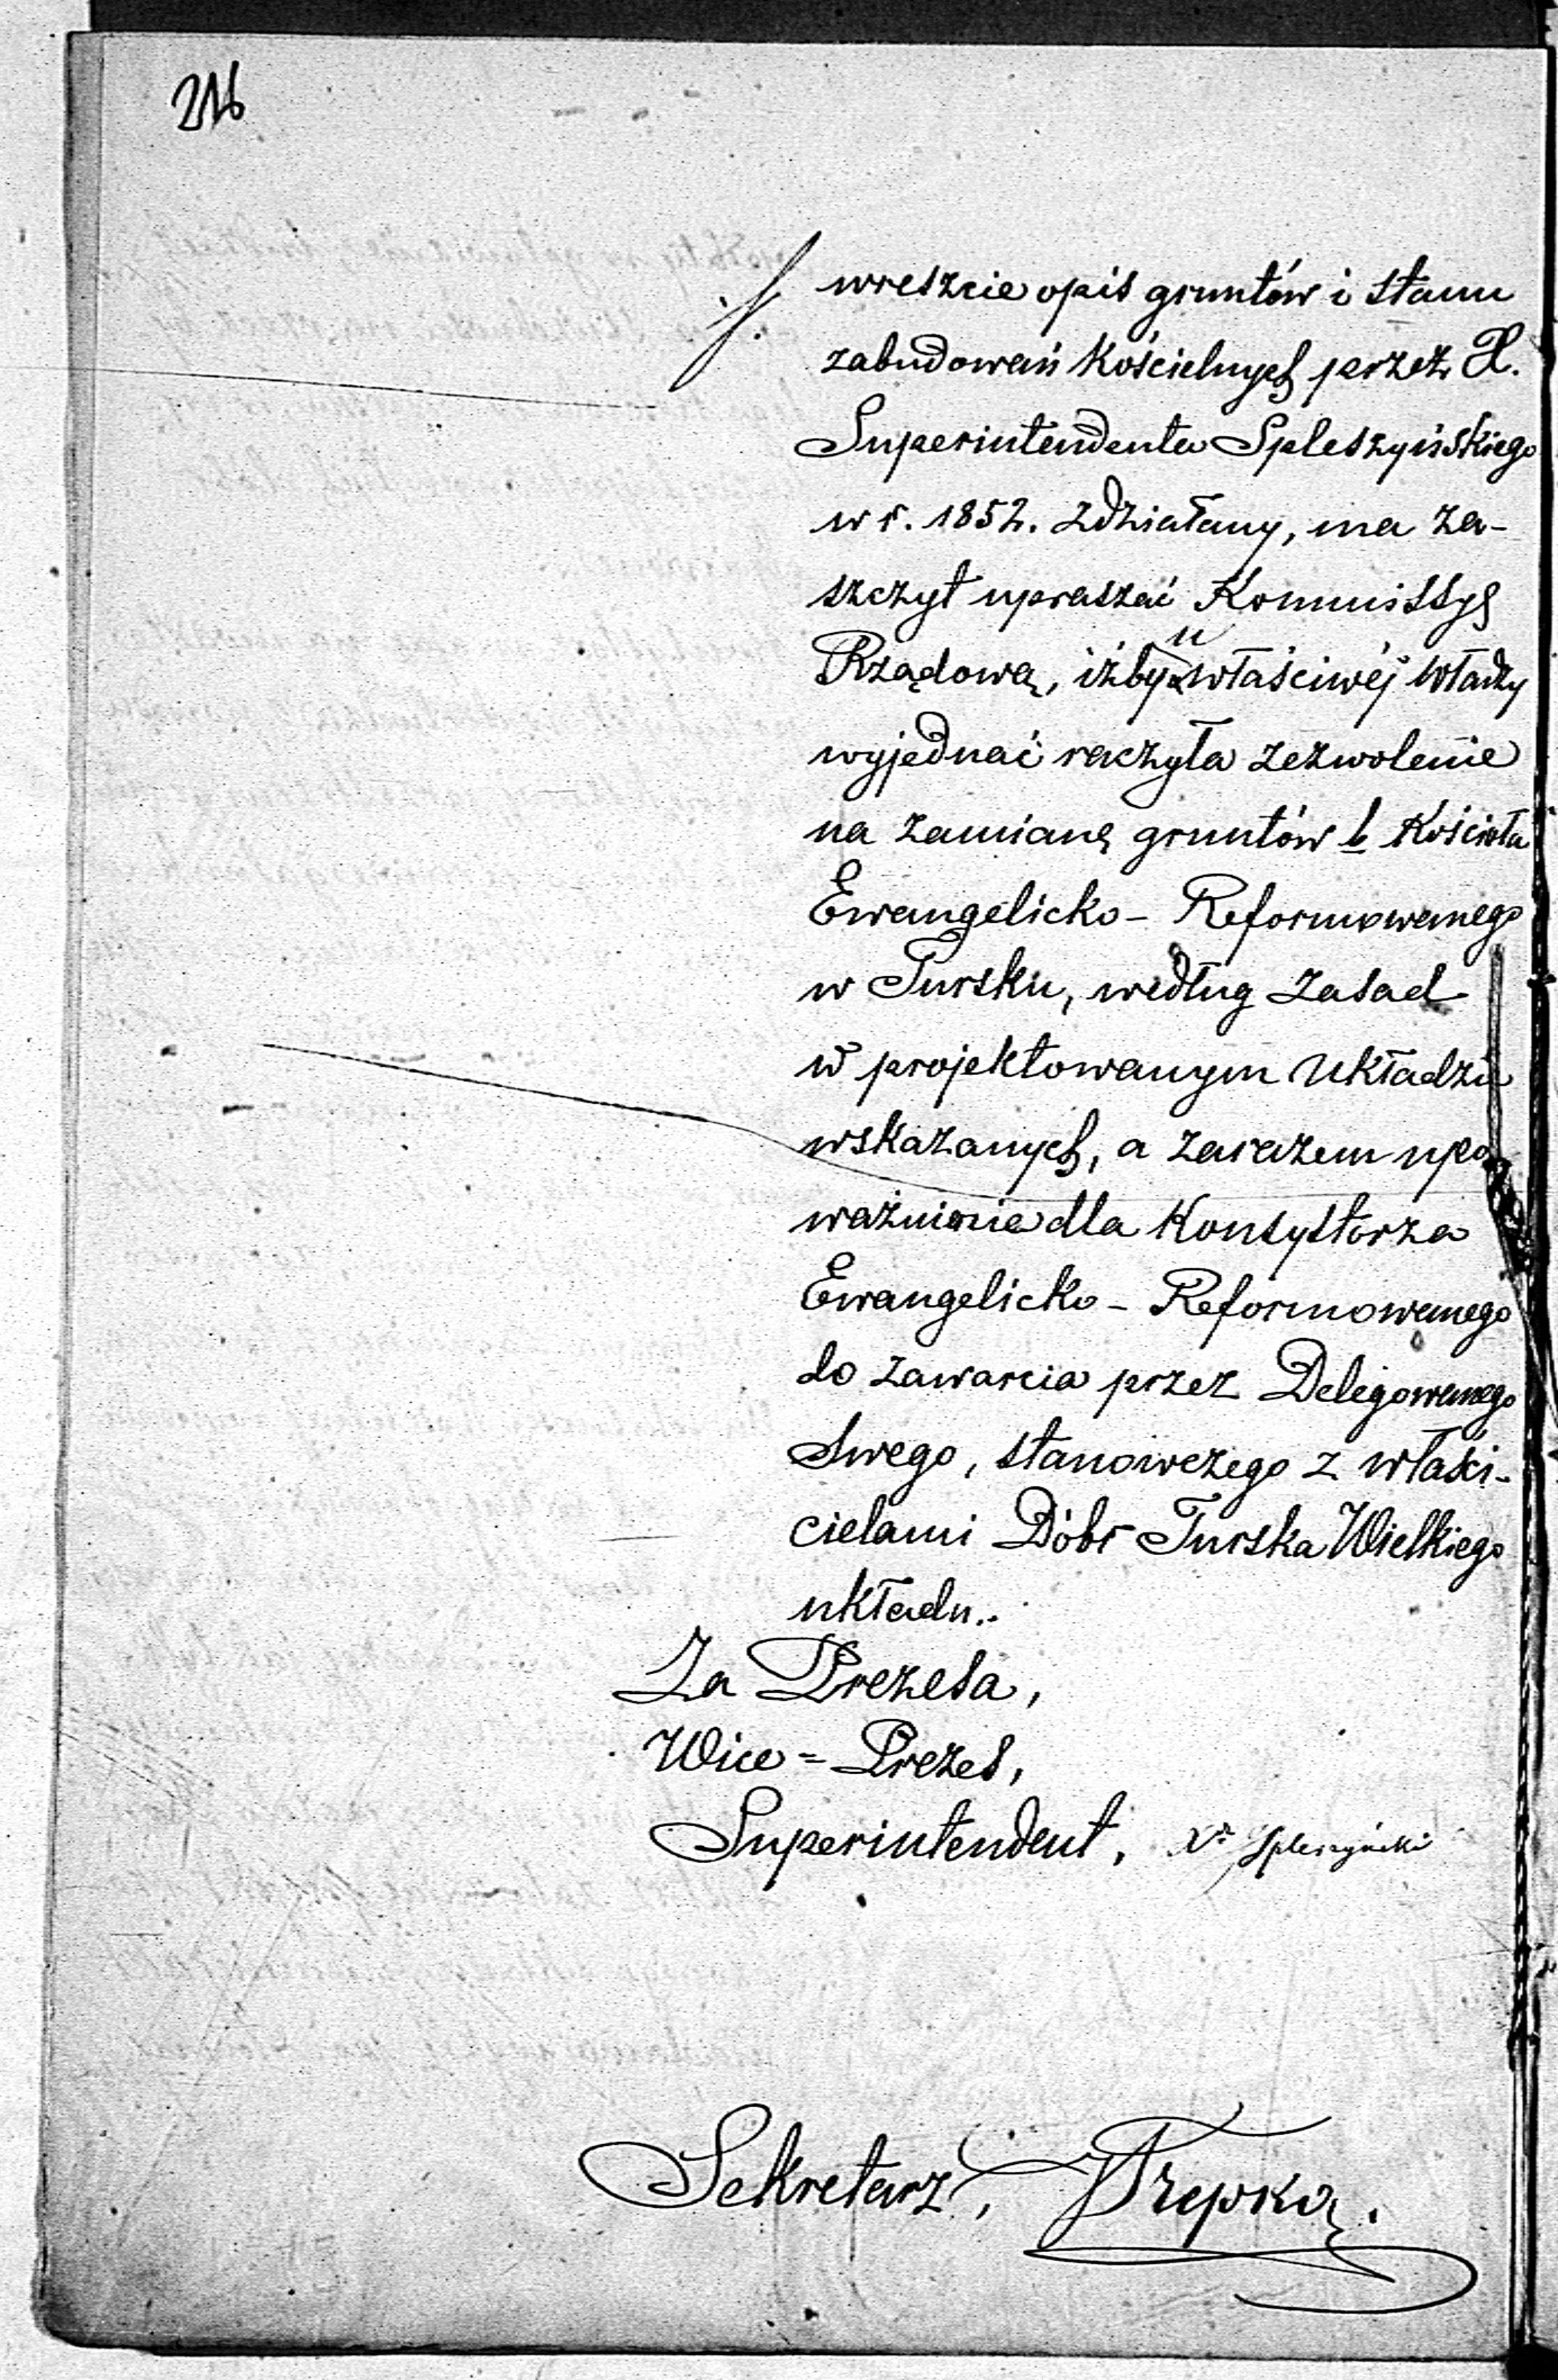 216
f. wreszcie opis gruntów i stanu
zabudowań Kościelnych przez X.
Superintendenta Spleszyńskiego
w r. 1852. zdziałany, ma za-
szczyt upraszać Kommissyę
Rządową, iżby u właściwéj Władzy
wyjednać raczyła zezwolenie
na zamianę gruntów b Kościoła
Ewangelicko - Reformowanego
w Tursku, według zasad
w projektowanym układzie
wskazanych, a zarazem upo
ważnienie dla Konsystorza
Ewangelicko - Reformowanego
do zawarcia przez Delegowanego
Swego, stanowczego z właści-
cielami Dóbr Turska Wielkiego
układu.
Za Prezesa,
Wice = Prezes,
Superintendent, Xdz Spleszyński
Sekretarz, Trepka.